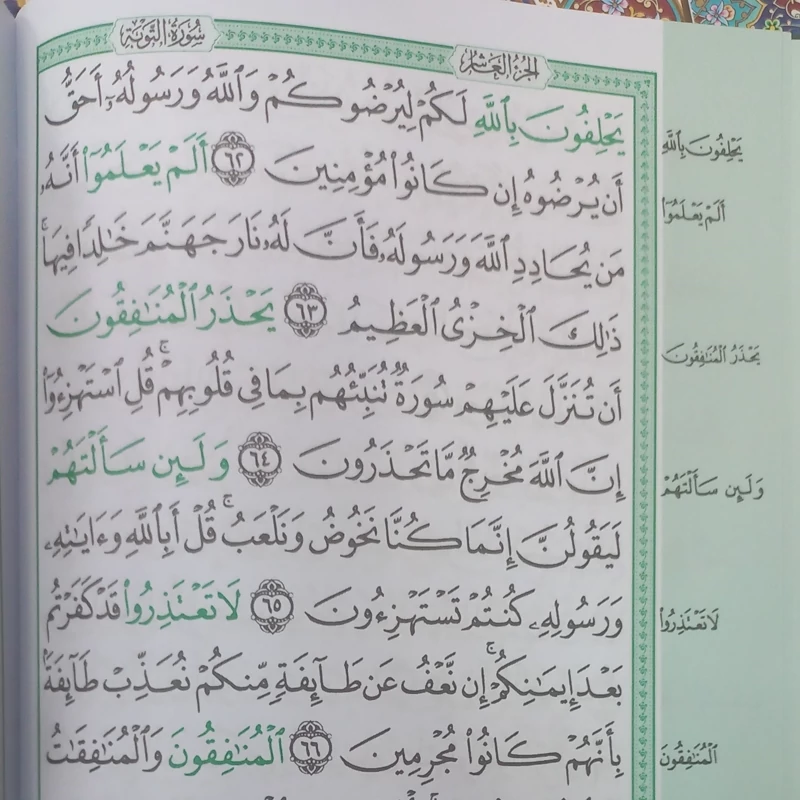 سُورَةُ التَّوْبَةِ
الجُزْءُ العَاشِرُ
يَحْلِفُونَ بِٱللَّهِ لَكُمْ لِيُرْضُوكُمْ وَٱللَّهُ وَرَسُولُهُۥٓ أَحَقُّ
أَن يُرْضُوهُ إِن كَانُوا۟ مُؤْمِنِينَ ٦٢ أَلَمْ يَعْلَمُوٓا۟ أَنَّهُۥ
مَن يُحَادِدِ ٱللَّهَ وَرَسُولَهُۥ فَأَنَّ لَهُۥ نَارَ جَهَنَّمَ خَٰلِدًا فِيهَا ۚ
ذَٰلِكَ ٱلْخِزْىُ ٱلْعَظِيمُ ٦٣ يَحْذَرُ ٱلْمُنَٰفِقُونَ
أَن تُنَزَّلَ عَلَيْهِمْ سُورَةٌ تُنَبِّئُهُم بِمَا فِى قُلُوبِهِمْ ۚ قُلِ ٱسْتَهْزِءُوٓا۟
إِنَّ ٱللَّهَ مُخْرِجٌ مَّا تَحْذَرُونَ ٦٤ وَلَئِن سَأَلْتَهُمْ
لَيَقُولُنَّ إِنَّمَا كُنَّا نَخُوضُ وَنَلْعَبُ ۚ قُلْ أَبِٱللَّهِ وَءَايَٰتِهِۦ
وَرَسُولِهِۦ كُنتُمْ تَسْتَهْزِءُونَ ٦٥ لَا تَعْتَذِرُوا۟ قَدْ كَفَرْتُم
بَعْدَ إِيمَٰنِكُمْ ۚ إِن نَّعْفُ عَن طَآئِفَةٍ مِّنكُمْ نُعَذِّبْ طَآئِفَةًۢ
بِأَنَّهُمْ كَانُوا۟ مُجْرِمِينَ ٦٦ ٱلْمُنَٰفِقُونَ وَٱلْمُنَٰفِقَٰتُ
يَحْلِفُونَ بِٱللَّهِ
أَلَمْ يَعْلَمُوٓا۟
يَحْذَرُ ٱلْمُنَٰفِقُونَ
وَلَئِن سَأَلْتَهُمْ
لَا تَعْتَذِرُوا۟
ٱلْمُنَٰفِقُونَ